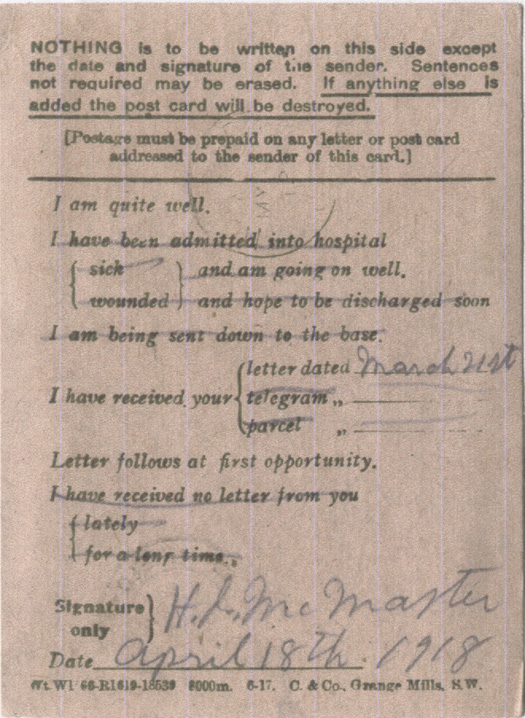 NOTHING is to be written on this side except
the date and signature of the sender. Sentences
not required may be erased. If anything else is
added the post card will be destroyed.
[Postage must be prepaid on any letter or post card
addressed to the sender of this card.]
I am quite well.
I have been admitted into hospital
sick and am going on well.
wounded and hope to be discharged soon
I am being sent down to the base.
letter dated March 21st
I have received your telegram „
parcel „
Letter follows at first opportunity.
I have received no letter from you
lately
for a long time.
Signature only H. McMaster
Date April 18th 1918
Wt.W1 66-R1619-18539 8000m. 6-17. C. & Co., Grange Mills, S.W.